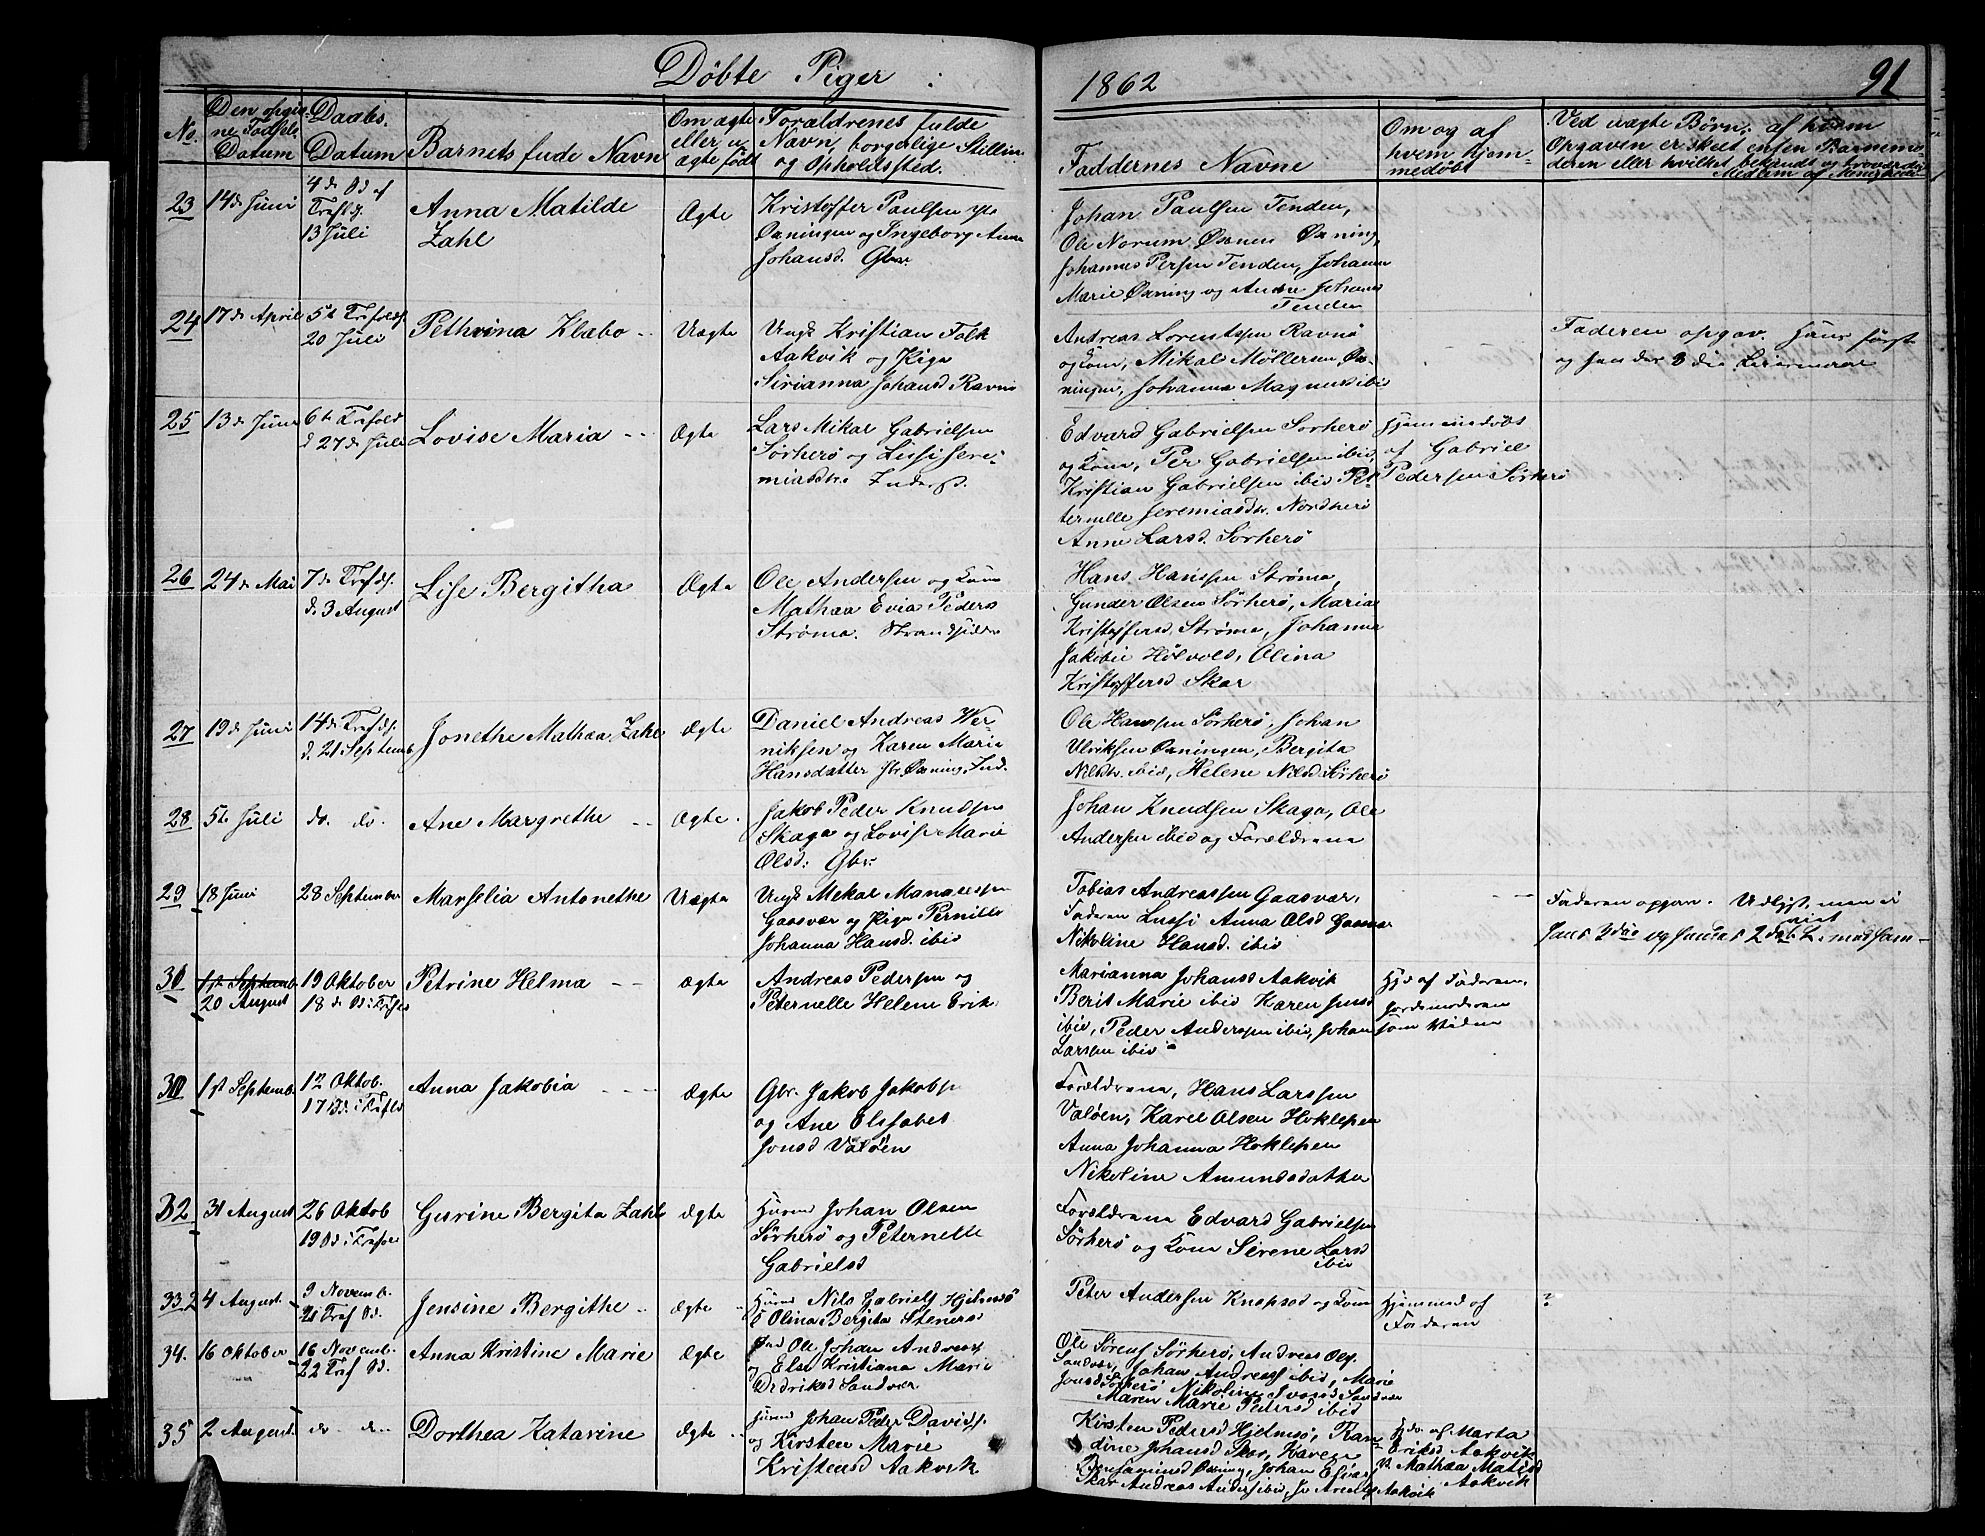 Döbte Piger : 1862 91
No. Den opgivne Födsels Datum
Daabs. Datum
Barnets fude Navn
Om ægte eller uægte född
Forældrenes fulde Navn, borgerlige Stilling og Opholdssted.
Faddernes Navne
Om og af hvem hjemmedöbt
Ved uægte Børn: af hvem Opgaven er skeet
23 14de Juni
13 Juli
Anna Matilde
Zahl
Ægte
Kristoffer Paulsen
Øxningen og Ingeborg Anna
Johansd. Gbr.
Johan Paulsen Tenden,
Ole Norum Øxnen Øxning,
Johannes Persen Tenden, Johanna
Marie Øxning og Johans
Tenden
24 17de April
20 Juli
Pethrina Klæbo
Uægte
Ungk. Kristian Falk
Aakvik og Pige
Sirianna Johansd Ravnø
Andreas Lorentssen Ravnø
og Kone, Mikal Möllersen Øx-
ningen, Johanna Magnusd ibid
Faderen opgav.
25 13de Juni
d 27de Juli
Lovise Maria
Ægte
Lars Mikal Gabrielsen
Sørherø og Jere-
miasdtr. Inderst.
Edvard Gabrielsen Sørherø
og Kone, Per Gabrielsen ibid,
Kristian Gabrielsen ibid Pet-
ternelle Jeremiasdtr. Nordherø
Anne Larsd. Sørherø
Hjemmedöbt
af Gabriel
Pedersen Sørherø
26 24de Mai
d. 3 August
Lise Bergitha
Ægte
Ole Andersen og Kone
Mathæa Evia Peders
Strøma. Strandsidder
Hans Hanssen Strøma,
Gunder Olsen Sørherø, Maria
Kristoffersd. Strøma, Johanna
Jakobie Hølvold, Olina
Kristoffersd Skar
27 19de Juni
d. 21 Septemb
Jonethe Mathæa Zahl
Ægte
Daniel Andreas Wer-
niksen og Karen Marie
Hansdatter Øxning Ind.
Ole Hanssen Sørherø, Johan
Ulriksen Øxningen, Bergita
Nilsdtr. ibid, Helene Nilsd. Sørherø
28 5te Juli
do. do.
Ane Margrethe
Ægte
Jakob Peder Knudsen
Skaga og Lovise Marie
Olsd. Gbr.
Johan Knudsen Skaga, Ole
Andersen ibid og Forældrene
29 18 Juni
28 September
Marselia Antonethe
Uægte
Ungk Mekal Manasessen
Gaasvær og Pige Pernille
Johanna Hansd. ibid
Tobias Andreassen Gaasvær,
Faderen Lussi Anna Olsd Gaasvær
Nikoline Hansd. ibid
Faderen opgav.
30
1st Septemb
20 August
19 Oktober
Petrine Helma
Ægte
Andreas Pedersen og
Peternelle Helene Erik
Marianna Johansd Aakvik
Berit Marie ibid Karen Jensd
ibid, Peder Anderssen ibid, Johan
Larssen ibid
Hjd af Faderen,
Jordemoderen
som Vidne
1st Septemb.
12 Oktob.
Anna Jakobia
Ægte
Gbr. Jakob Jakobs
og Ane Elisabet
Jonsd Valöen
Forældrene, Hans Larssen
Valöen, Karel Olsen Hoklepen
Anna Johanna Hoklepen
Nikoline Amundsdatter
32 31 August
26 Oktob
Gurine Bergita Zahl
Ægte
Johan Olsen
Sørherø og Peternelle
Gabrielsd
Forældrene Edvard Gabrielsen
Sørherø og Kone Sirene Larsd
ibid
33 4 August.
9 Novemb.
Jensine Bergithe
Ægte
Nils Gabriels Hjelmsö
Olina Bergita Stenersd
Peter Andersen Knapsad og Kone
Hjemmed af
Faderen
34. 16 Oktober
16 Novemb.
Anna Kristine Marie
Ægte
Ole Johan Andreas
og Else Kristiana Marie
Dedriksd Sandvær
Ole Sörens Sörherö, Andreas Ols
Sandvær, Johan Andreas ibid, Marie
Jonsd. Sörherö Nikoline Iversd Sandvær
Maren Marie Petersd ibid
35 2 August.
do do
Dorthea Katarine
Ægte
Johan Peder Davids
og Kirsten Marie
Kristensd Aakvik
Kirsten Pedersd Hjelmsö, Ran-
dine Johansd Skar, Karen
Benjaminsd Øxning, Johan Elias
Skar Andreas Anders ibid, Aakvik
Hjd. af Marta
Eriksd Aakvik
V. Mathæa Matisd
Aakvik